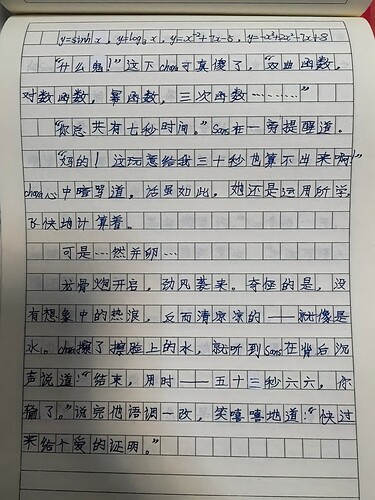 y=sinh x, y=log₂x, y=x⁺²+7x-8, y=-x³+2x²-7x+8
“什么鬼!”这下chara可真傻了，“双曲函数，
对数函数，幂函数，三次函数………”
“你总共有七秒时间。”Sans在一旁提醒道。
“妈的！这玩意给我三十秒也算不出来啊!”
chara心中暗骂道。话虽如此，她还是运用所学，
飞快地计算着。
可是…然并卵…
龙骨炮开启，劲风袭来。奇怪的是，没
有想象中的热浪，反而清凉凉的——就像是
水。chara擦了擦脸上的水，就听到Sans在背后沉
声说道:“结束，用时——五十三秒六六，你
输了。”说完他语调一改，笑嘻嘻地道:“快过
来给个爱的证明。”